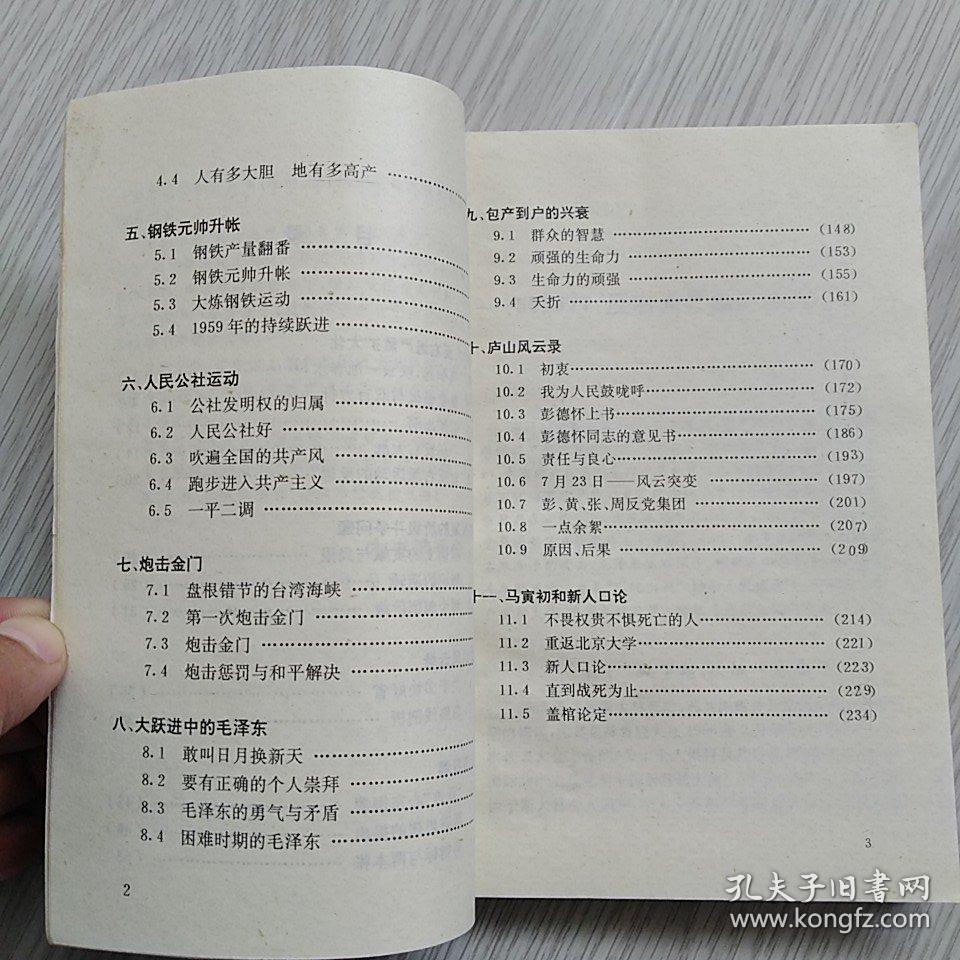 4.4 人有多大胆 地有多高产 ……………
五、钢铁元帅升帐
5.1 钢铁产量翻番 ……………
5.2 钢铁元帅升帐 ……………
5.3 大炼钢铁运动 ……………
5.4 1959年的持续跃进 ……………
六、人民公社运动
6.1 公社发明权的归属 ……………
6.2 人民公社好 ……………
6.3 吹遍全国的共产风 ……………
6.4 跑步进入共产主义 ……………
6.5 一平二调 ……………
七、炮击金门
7.1 盘根错节的台湾海峡 ……………
7.2 第一次炮击金门 ……………
7.3 炮击金门 ……………
7.4 炮击惩罚与和平解决 ……………
八、大跃进中的毛泽东
8.1 敢叫日月换新天 ……………
8.2 要有正确的个人崇拜 ……………
8.3 毛泽东的勇气与矛盾 ……………
8.4 困难时期的毛泽东 ……………
2
九、包产到户的兴衰
9.1 群众的智慧 ……………(148)
9.2 顽强的生命力 ……………(153)
9.3 生命力的顽强 ……………(155)
9.4 夭折 ……………(161)
十、庐山风云录
10.1 初衷 ……………(170)
10.2 我为人民鼓咙呼 ……………(172)
10.3 彭德怀上书 ……………(175)
10.4 彭德怀同志的意见书 ……………(186)
10.5 责任与良心 ……………(193)
10.6 7月23日——风云突变 ……………(197)
10.7 彭、黄、张、周反党集团 ……………(201)
10.8 一点余絮 ……………(207)
10.9 原因、后果 ……………(209)
十一、马寅初和新人口论
11.1 不畏权贵不惧死亡的人 ……………(214)
11.2 重返北京大学 ……………(221)
11.3 新人口论 ……………(223)
11.4 直到战死为止 ……………(229)
11.5 盖棺论定 ……………(234)
3
孔夫子旧书网
www.kongfz.com